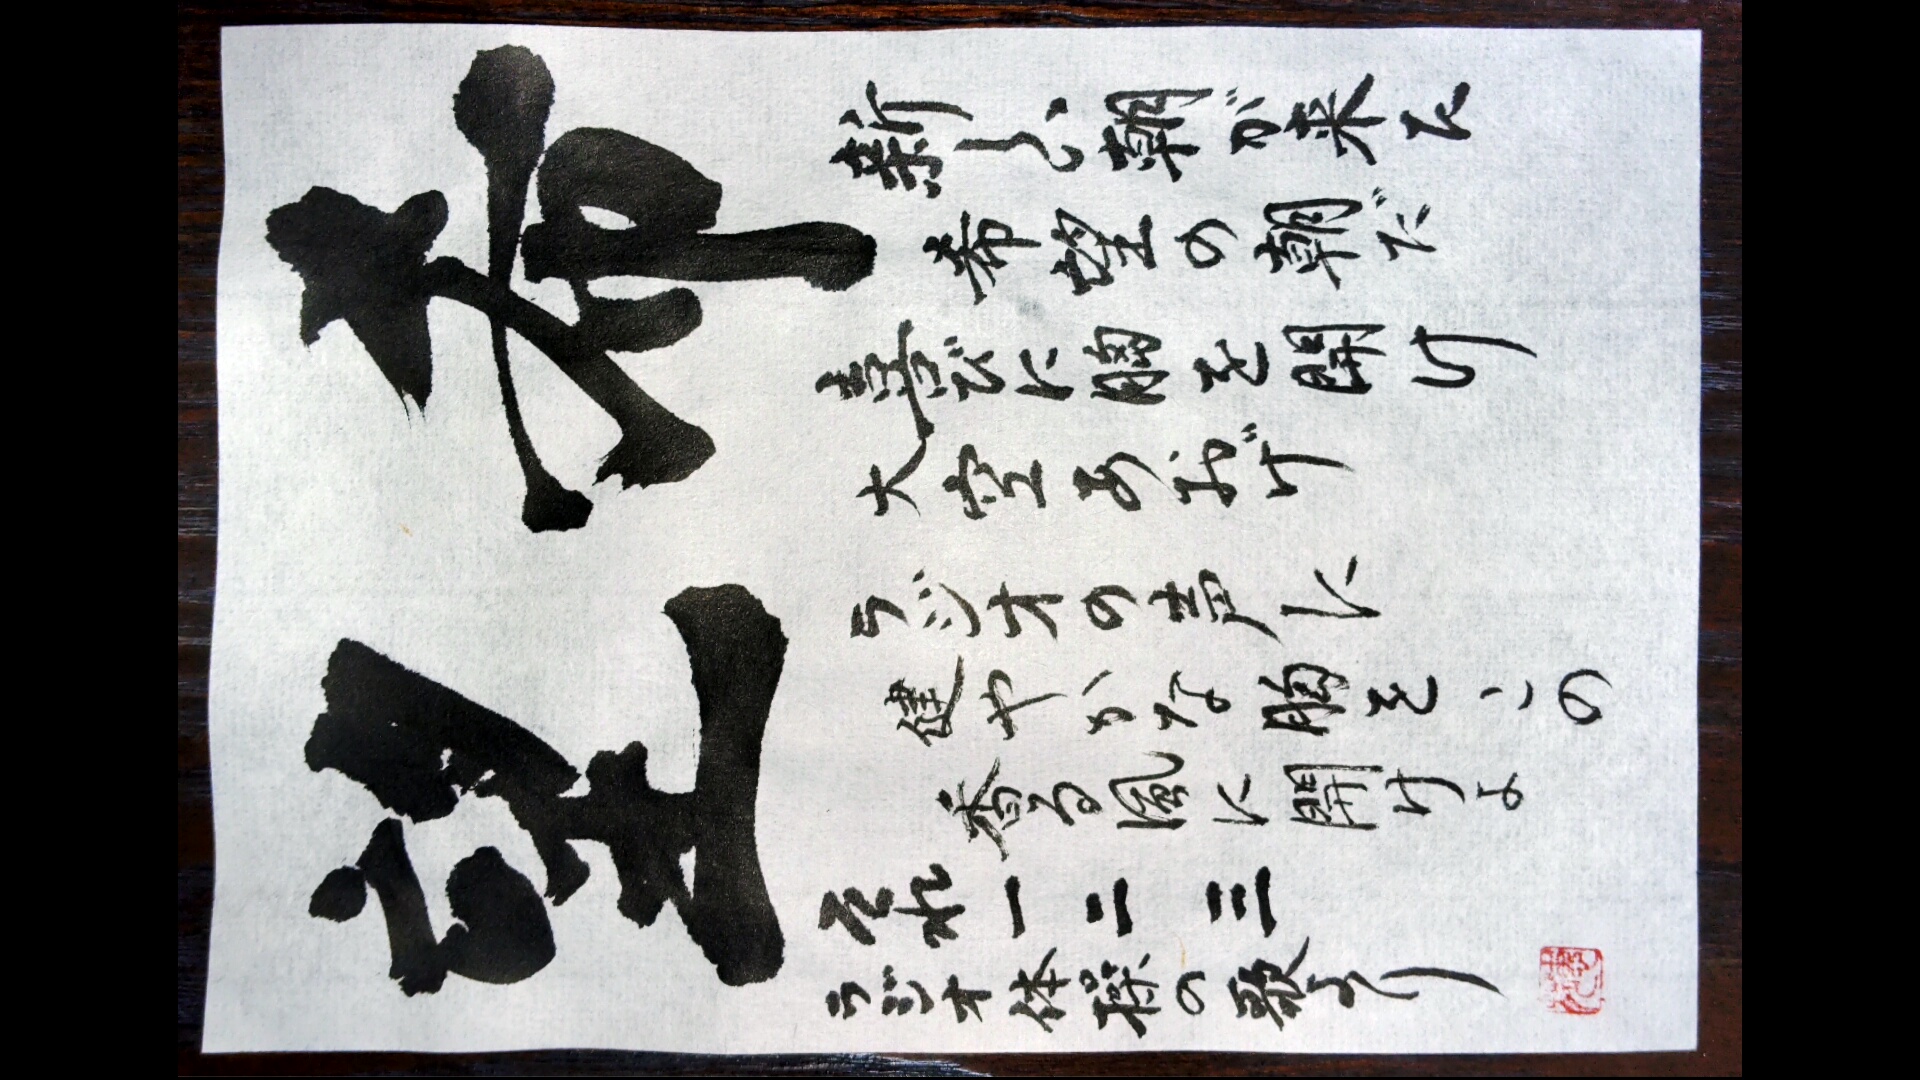 希望
新しい朝が来た
希望の朝だ
喜びに胸を開け
大空あおげ
ラジオの声に
健やかな胸をこの
香る風に開けよ
それ一二三
ラジオ体操の歌より